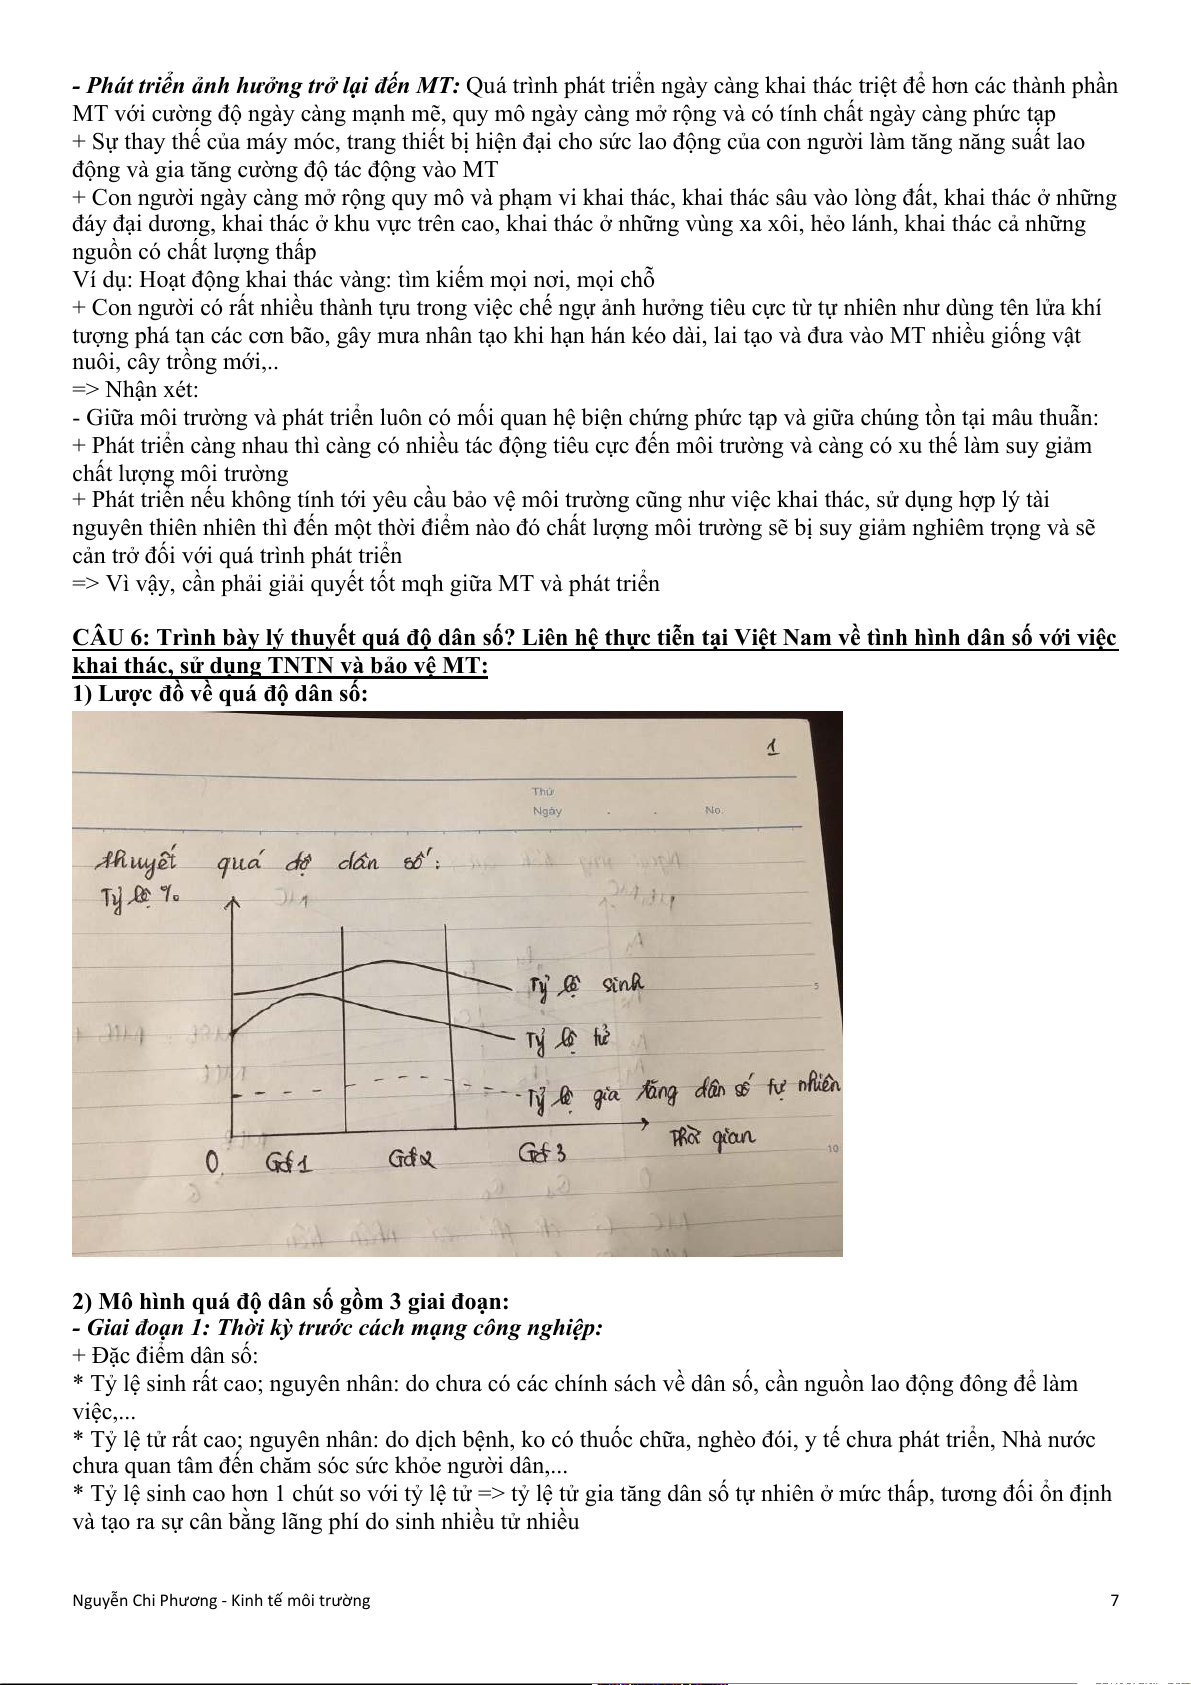 - Phát triển ảnh hưởng trở lại đến MT: Quá trình phát triển ngày càng khai thác triệt để hơn các thành phần
MT với cường độ ngày càng mạnh mẽ, quy mô ngày càng mở rộng và có tính chất ngày càng phức tạp
+ Sự thay thế của máy móc, trang thiết bị hiện đại cho sức lao động của con người làm tăng năng suất lao
động và gia tăng cường độ tác động vào MT
+ Con người ngày càng mở rộng quy mô và phạm vi khai thác, khai thác sâu vào lòng đất, khai thác ở những
đáy đại dương, khai thác ở khu vực trên cao, khai thác ở những vùng xa xôi, hẻo lánh, khai thác cả những
nguồn có chất lượng thấp
Ví dụ: Hoạt động khai thác vàng: tìm kiếm mọi nơi, mọi chỗ
+ Con người có rất nhiều thành tựu trong việc chế ngự ảnh hưởng tiêu cực từ tự nhiên như dùng tên lửa khí
tượng phá tan các cơn bão, gây mưa nhân tạo khi hạn hán kéo dài, lai tạo và đưa vào MT nhiều giống vật
nuôi, cây trồng mới,..
=> Nhận xét:
- Giữa môi trường và phát triển luôn có mối quan hệ biện chứng phức tạp và giữa chúng tồn tại mâu thuẫn:
+ Phát triển càng nhau thì càng có nhiều tác động tiêu cực đến môi trường và càng có xu thế làm suy giảm
chất lượng môi trường
+ Phát triển nếu không tính tới yêu cầu bảo vệ môi trường cũng như việc khai thác, sử dụng hợp lý tài
nguyên thiên nhiên thì đến một thời điểm nào đó chất lượng môi trường sẽ bị suy giảm nghiêm trọng và sẽ
cản trở đối với quá trình phát triển
=> Vì vậy, cần phải giải quyết tốt mqh giữa MT và phát triển
CÂU 6: Trình bày lý thuyết quá độ dân số? Liên hệ thực tiễn tại Việt Nam về tình hình dân số với việc
khai thác, sử dụng TNTN và bảo vệ MT:
1) Lược đồ về quá độ dân số:
1
Thứ
Ngày . . No.
thuyết quá độ dân số:
Tỷ lệ %
Tỷ lệ sinh
5
Tỷ lệ tử
Tỷ lệ gia tăng dân số tự nhiên
Thời gian
10
0 Gđ1 Gđ2 Gđ3
2) Mô hình quá độ dân số gồm 3 giai đoạn:
- Giai đoạn 1: Thời kỳ trước cách mạng công nghiệp:
+ Đặc điểm dân số:
* Tỷ lệ sinh rất cao; nguyên nhân: do chưa có các chính sách về dân số, cần nguồn lao động đông để làm
việc,...
* Tỷ lệ tử rất cao; nguyên nhân: do dịch bệnh, ko có thuốc chữa, nghèo đói, y tế chưa phát triển, Nhà nước
chưa quan tâm đến chăm sóc sức khỏe người dân,...
* Tỷ lệ sinh cao hơn 1 chút so với tỷ lệ tử => tỷ lệ tử gia tăng dân số tự nhiên ở mức thấp, tương đối ổn định
và tạo ra sự cân bằng lãng phí do sinh nhiều tử nhiều
Nguyễn Chi Phương - Kinh tế môi trường 7